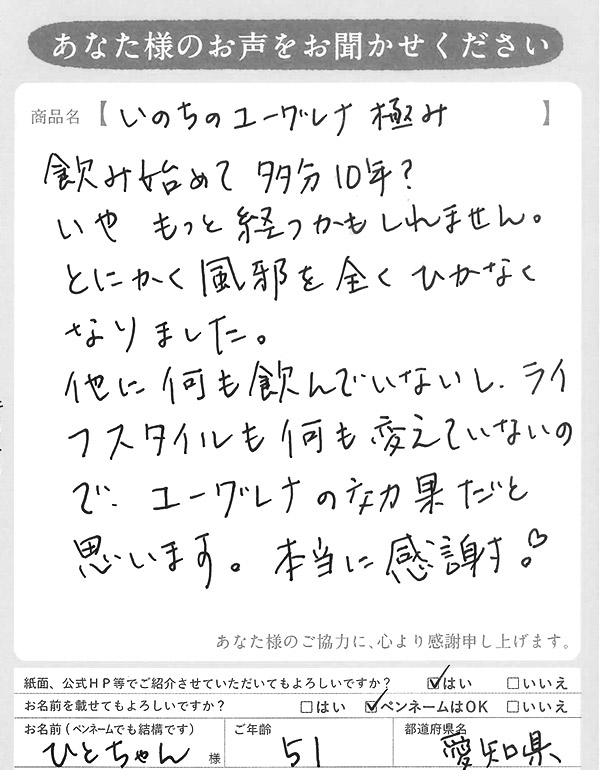 あなた様のお声をお聞かせください
商品名【いのちのユーグレナ 極み】
飲み始めて 多分10年?
いや もっと経つかもしれません。
とにかく風邪を全くひかなく
なりました。
他に何も飲んでいないし、ライ
フスタイルも何も変えていないの
で、ユーグレナの効果だと
思います。本当に感謝す!♡
あなた様のご協力に、心より感謝申し上げます。
紙面、公式HP等でご紹介させていただいてもよろしいですか? ☑はい □いいえ
お名前を載せてもよろしいですか? □はい ☑ペンネームはOK □いいえ
お名前(ペンネームでも結構です) ご年齢 都道府県名
ひとちゃん 様 51 愛知県